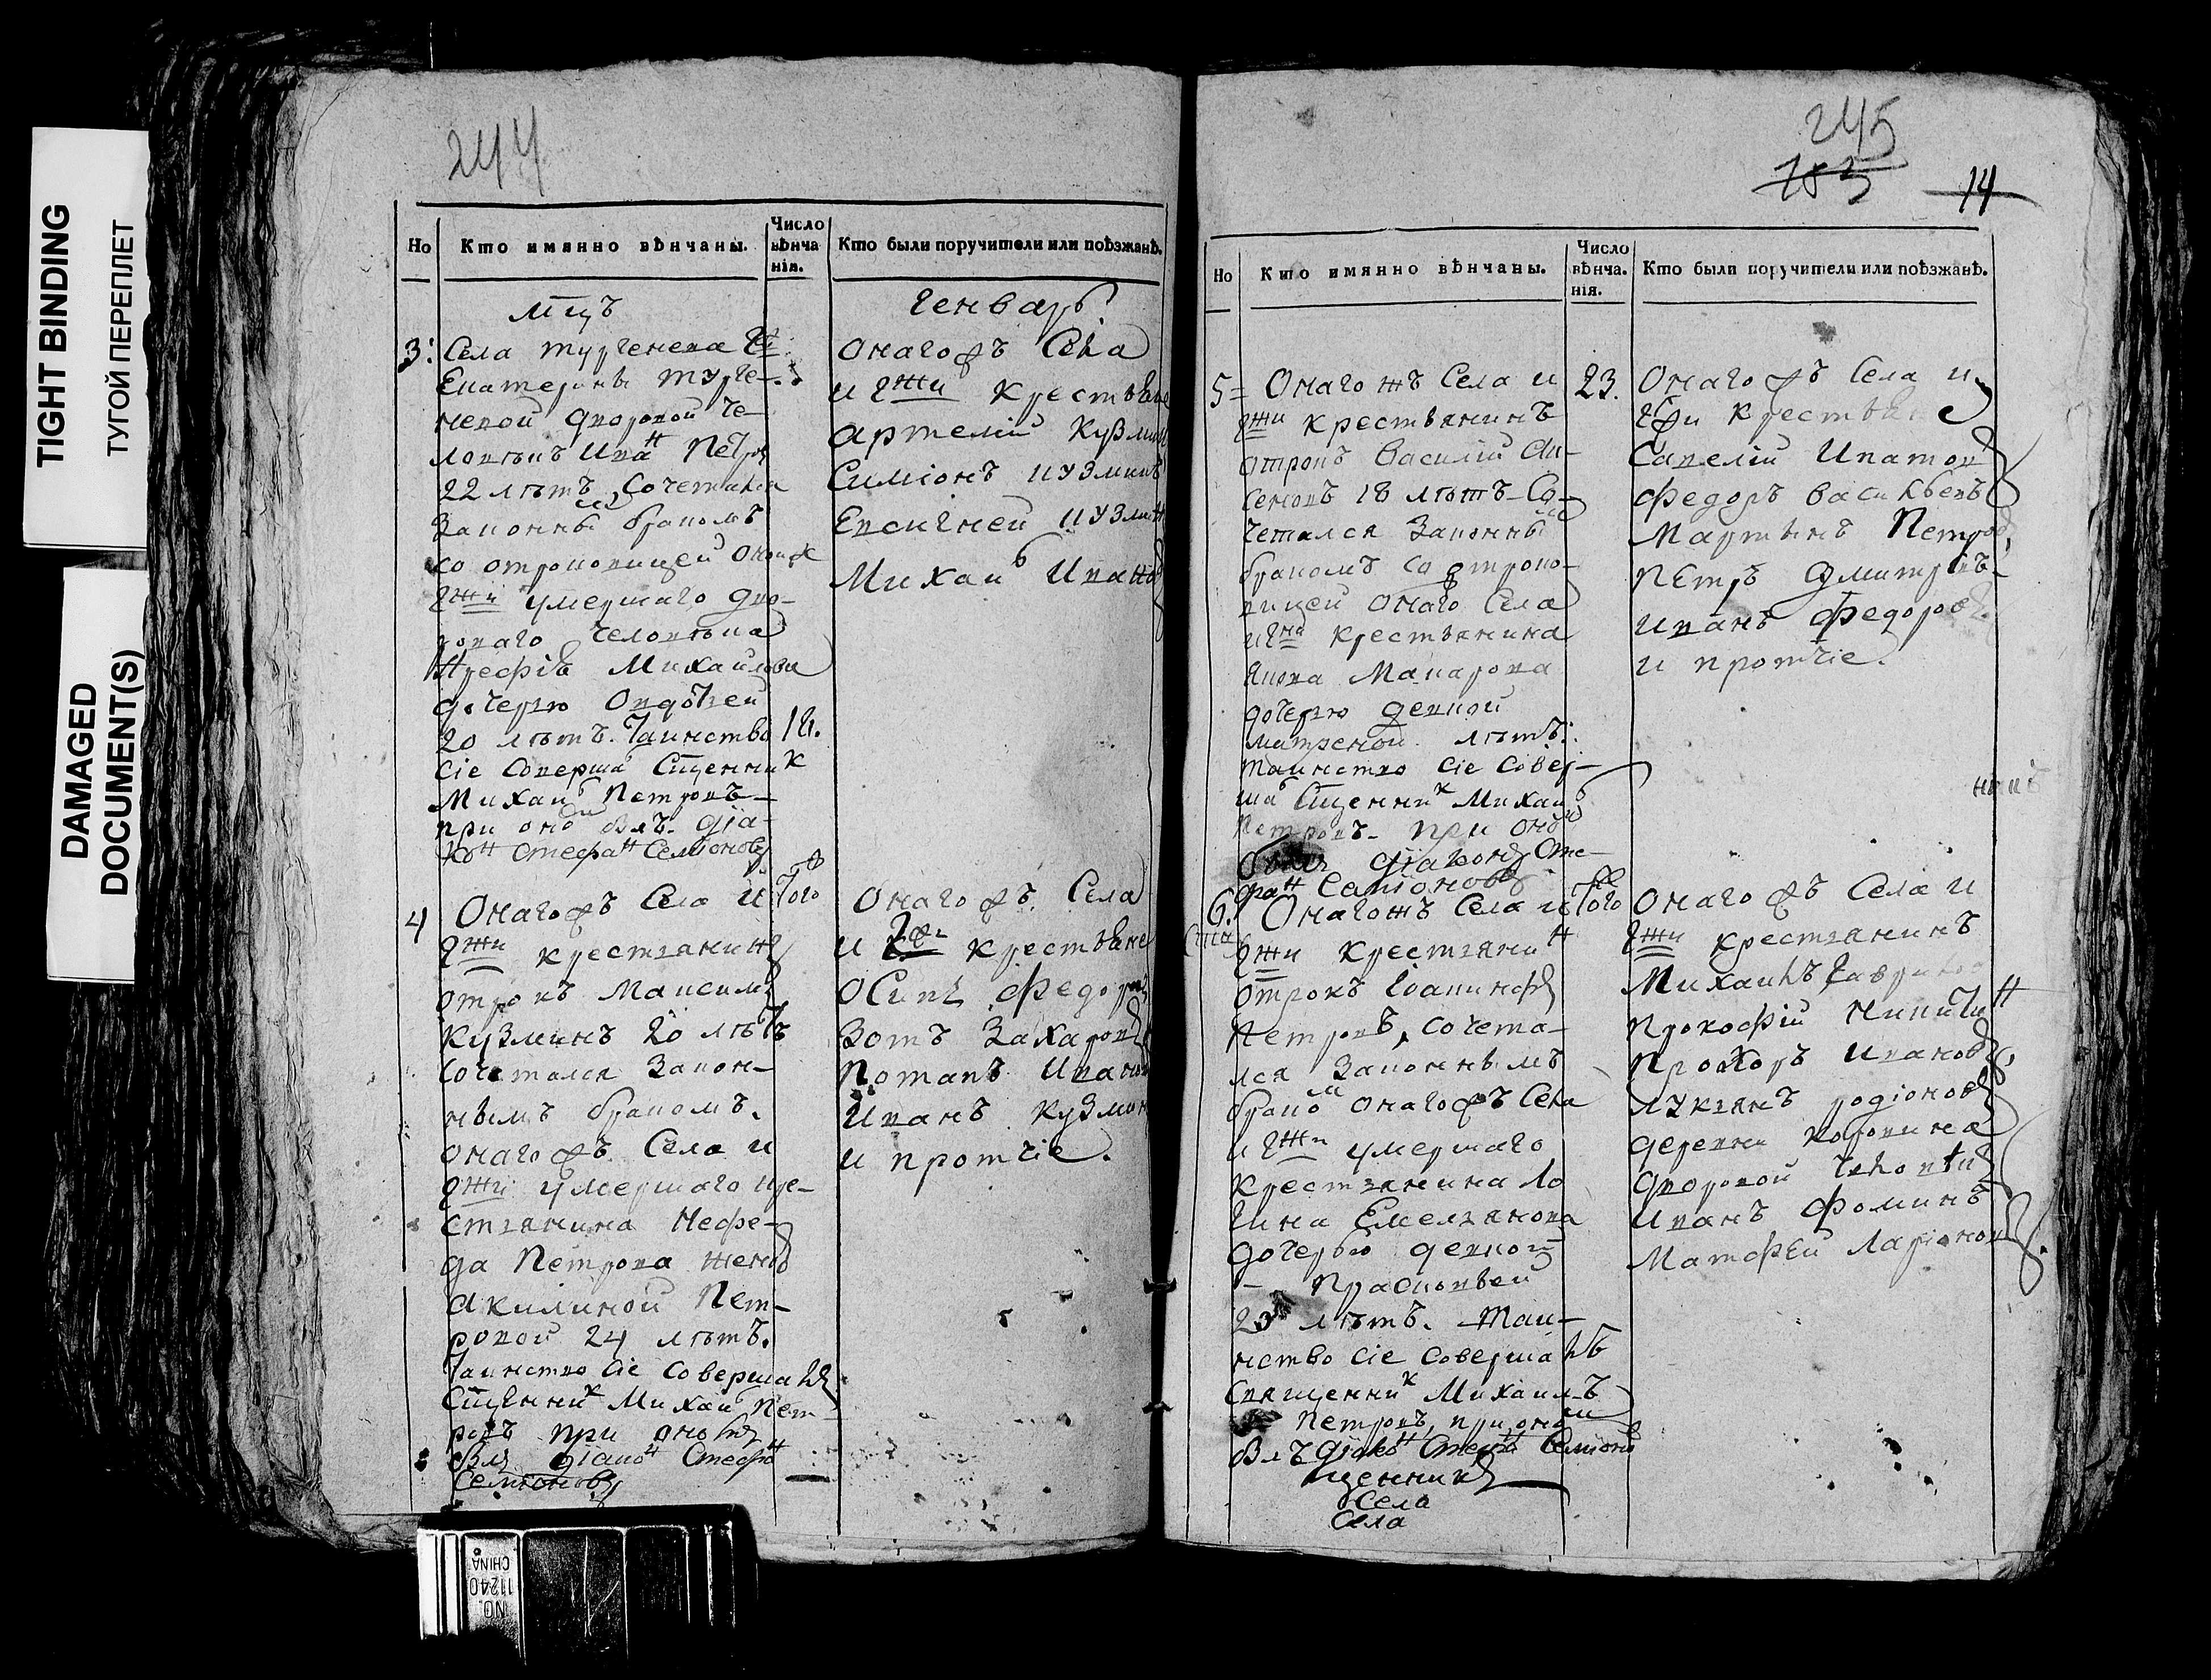 TIGHT BINDING
ТУГОЙ ПЕРЕПЛЕТ
DAMAGED
DOCUMENT(S)
244
Но
Кто имянно вѣнчаны.
Число
вѣнча
нія.
Кто были поручители или поѣзжанѣ.
мцъ
Генварь
3:
Села тургенева Гжи
Екатерины турге-
невой дворовой че-
ловѣкъ Иванъ Петровъ
22 лѣтъ Сочетался
Законны бракомъ
со отроковицей оной ж
Гжи умершаго дво-
роваго человѣка
Михайлова
дочерью Овдотьей
20 лѣтъ. Таинство
18.
сіе Соверша Сщенник
Михаи Петровъ
при оно былъ діа-
конъ Стефанъ Семіоновъ
онагожъ Села
и Гжи крестьяне
артемій Кузмин
Симіонъ Кузминъ
Евсигней Кузмин
Михаи Иванов
4
Онагожъ Села и
Гжи крестьянинъ
отрокъ Максимъ
Кузминъ 20 лѣтъ
Сочетался Закон-
нымъ бракомъ.
онагожъ Села и
Гжи умершаго кре-
стьянина Нефе-
да Петрова женой
Акилиной Пет-
ровой 24 лѣтъ.
Таинство сіе Совершалъ
Сщенник Михаи Пет-
ровъ при оно
былъ діакон Стефан
Семіоновъ
Того
Онагожъ Села
и Гжи крестьяне
Осипъ Федоровъ
Зотъ Захаровъ
Потапъ Иванов
Иванъ Кузмин
и протчіе.
245
183
14
Но
Кто имянно вѣнчаны.
Число
вѣнча.
нія.
Кто были поручители или поѣзжанѣ.
5
Онагожъ Села и
Гжи крестьянинъ
отрокъ Василій Ак-
сеновъ 18 лѣтъ Со-
четался Законны
бракомъ со отроко-
вицей онаго Села
и Гжи крестьянина
Якова Макарова
дочерью девкой
матреной лѣтъ:
таинство сіе Совер-
ша Сщенник Михаи
Петровъ при оно
былъ діаконъ Сте-
фан Семіоновъ
23.
Онагожъ Села и
Гжи крестьяне
Савелій Ипатовъ
Федоръ Васильевъ
Мартынъ Петров
Петръ Дмитрівъ
Иванъ Федоровъ
и протчіе.
6.
Онагожъ Села и
Гжи крестьянин
отрокъ
Петровъ, сочета-
лся Законнымъ
бракомъ онагожъ Села
и Гжи умершаго
крестьянина Ло
гина Емельянова
дочерью девкой
Прасковьей
23 лѣтъ. Таи-
нство сіе Совершалъ
Священник Михаилъ
Петровъ, при оно
былъ діакон Стефа Семіоно
щенникъ
Села
Села
Того
Онагожъ Села и
Гжи крестьянинъ
Михаилъ Гаврилов
Прокофій Никитин
Прохоръ Ивановъ
Лукьянъ родіоновъ
деревни
дворовой человѣкъ
Иванъ Фоминъ
Матфѣй Ларіонов
NO.
11240
CHINA